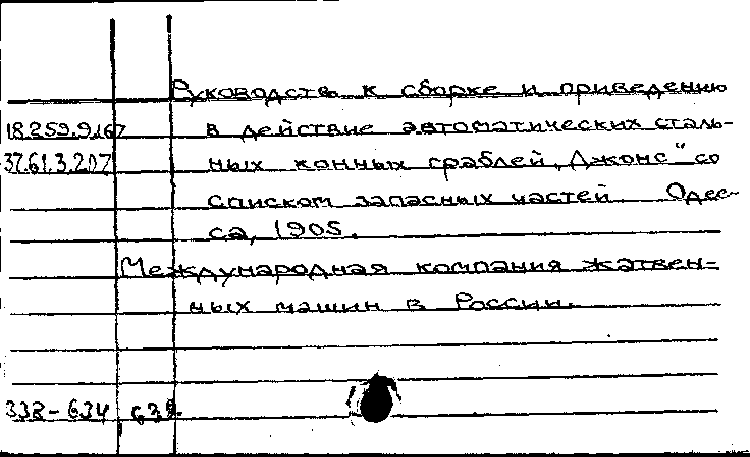 Руководство к сборке и приведению
18.259.9.167 в действие автоматических сталь-
37.61.3.207 ных конных граблей „Джонс" со
списком запасных частей. Одес-
са, 1905.
Международная компания жатвен-
ных машин в России.
338-634, 639